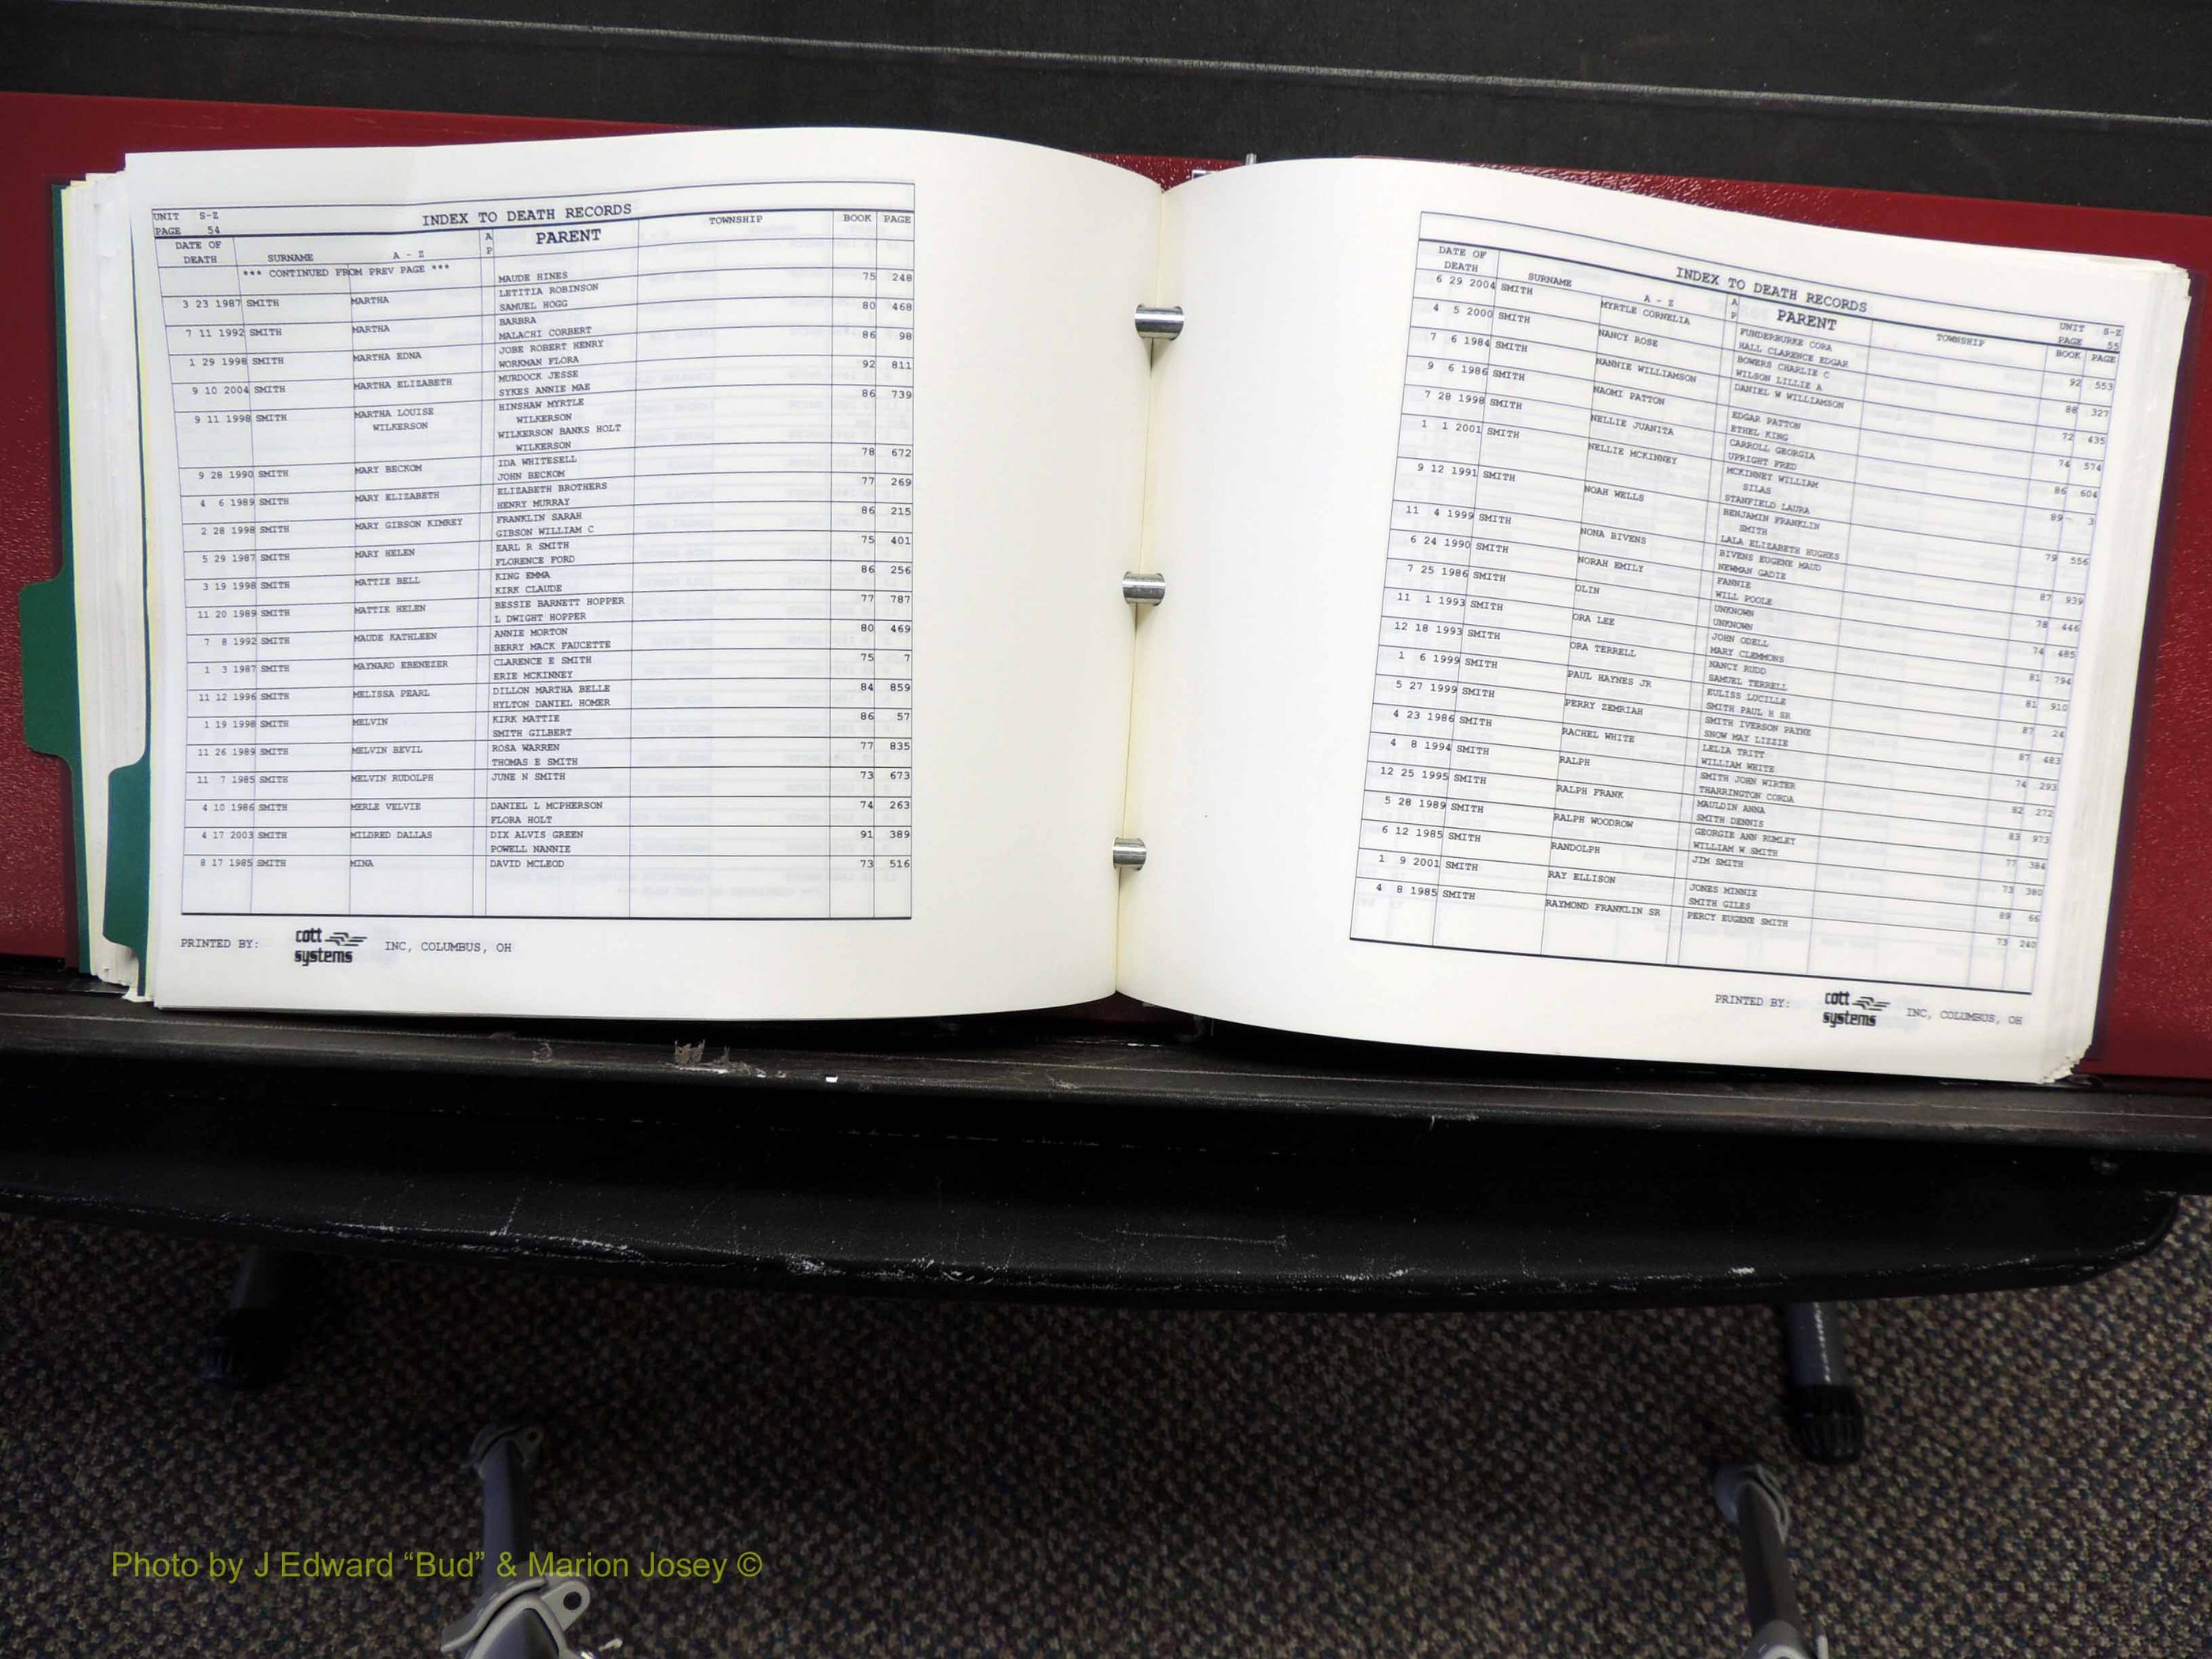 UNIT S-Z
PAGE 54
INDEX TO DEATH RECORDS
DATE OF DEATH SURNAME A - Z A P PARENT TOWNSHIP BOOK PAGE
*** CONTINUED FROM PREV PAGE *** MAUDE HINES
3 23 1987 SMITH MARTHA LETITIA ROBINSON 75 248
SAMUEL HOGG
7 11 1992 SMITH MARTHA BARBRA 80 468
MALACHI CORBERT
1 29 1998 SMITH MARTHA EDNA JOBE ROBERT HENRY 86 98
WORKMAN FLORA
9 10 2004 SMITH MARTHA ELIZABETH MURDOCK JESSE 92 811
SYKES ANNIE MAE
9 11 1998 SMITH MARTHA LOUISE HINSHAW MYRTLE 86 739
WILKERSON WILKERSON
WILKERSON BANKS HOLT
WILKERSON
9 28 1990 SMITH MARY BECKOM IDA WHITESELL 78 672
JOHN BECKOM
4 6 1989 SMITH MARY ELIZABETH ELIZABETH BROTHERS 77 269
HENRY MURRAY
2 28 1998 SMITH MARY GIBSON KIMREY FRANKLIN SARAH 86 215
GIBSON WILLIAM C
5 29 1987 SMITH MARY HELEN EARL R SMITH 75 401
FLORENCE FORD
3 19 1998 SMITH MATTIE BELL KING EMMA 86 256
KIRK CLAUDE
11 20 1989 SMITH MATTIE HELEN BESSIE BARNETT HOPPER 77 787
L DWIGHT HOPPER
7 8 1992 SMITH MAUDE KATHLEEN ANNIE MORTON 80 469
BERRY MACK FAUCETTE
1 3 1987 SMITH MAYNARD EBENEZER CLARENCE E SMITH 75 7
ERIE MCKINNEY
11 12 1996 SMITH MELISSA PEARL DILLON MARTHA BELLE 84 859
HYLTON DANIEL HOMER
1 19 1998 SMITH MELVIN KIRK MATTIE 86 57
SMITH GILBERT
11 26 1989 SMITH MELVIN BEVIL ROSA WARREN 77 835
THOMAS E SMITH
11 7 1985 SMITH MELVIN RUDOLPH JUNE N SMITH 73 673
4 10 1986 SMITH MERLE VELVIE DANIEL L MCPHERSON 74 263
FLORA HOLT
4 17 2003 SMITH MILDRED DALLAS DIX ALVIS GREEN 91 389
POWELL NANNIE
8 17 1985 SMITH MINA DAVID MCLEOD 73 516
PRINTED BY: cott systems INC, COLUMBUS, OH
INDEX TO DEATH RECORDS
UNIT S-Z
PAGE 55
DATE OF DEATH SURNAME A - Z A P PARENT TOWNSHIP BOOK PAGE
6 29 2004 SMITH MYRTLE CORNELIA FUNDERBURKE CORA 92 553
HALL CLARENCE EDGAR
4 5 2000 SMITH NANCY ROSE BOWERS CHARLIE C 88 327
WILSON LILLIE A
7 6 1984 SMITH NANNIE WILLIAMSON DANIEL W WILLIAMSON 72 435
9 6 1986 SMITH NAOMI PATTON EDGAR PATTON 74 574
ETHEL KING
7 28 1998 SMITH NELLIE JUANITA CARROLL GEORGIA 86 604
UPRIGHT FRED
1 1 2001 SMITH NELLIE MCKINNEY MCKINNEY WILLIAM 89 3
SILAS
STANFIELD LAURA
9 12 1991 SMITH NOAH WELLS BENJAMIN FRANKLIN 79 556
SMITH
LALA ELIZABETH HUGHES
11 4 1999 SMITH NONA BIVENS BIVENS EUGENE MAUD 87 939
NEWMAN GADIE
6 24 1990 SMITH NORAH EMILY FANNIE 78 446
WILL POOLE
7 25 1986 SMITH OLIN UNKNOWN 74 485
UNKNOWN
11 1 1993 SMITH ORA LEE JOHN ODELL 81 794
MARY CLEMMONS
12 18 1993 SMITH ORA TERRELL NANCY RUDD 81 910
SAMUEL TERRELL
1 6 1999 SMITH PAUL HAYNES JR EULISS LUCILLE 87 24
SMITH PAUL H SR
5 27 1999 SMITH PERRY ZEMRIAH SMITH IVERSON PAYNE 87 483
SNOW MAY LIZZIE
4 23 1986 SMITH RACHEL WHITE LELIA TRITT 74 293
WILLIAM WHITE
4 8 1994 SMITH RALPH SMITH JOHN WIRTER 82 272
THARRINGTON CORDA
12 25 1995 SMITH RALPH FRANK MAULDIN ANNA 83 973
SMITH DENNIS
5 28 1989 SMITH RALPH WOODROW GEORGIE ANN RUMLEY 77 384
WILLIAM W SMITH
6 12 1985 SMITH RANDOLPH JIM SMITH 73 380
1 9 2001 SMITH RAY ELLISON JONES MINNIE 89 66
SMITH GILES
4 8 1985 SMITH RAYMOND FRANKLIN SR PERCY EUGENE SMITH 73 240
PRINTED BY: cott systems INC, COLUMBUS, OH
Photo by J Edward “Bud” & Marion Josey ©